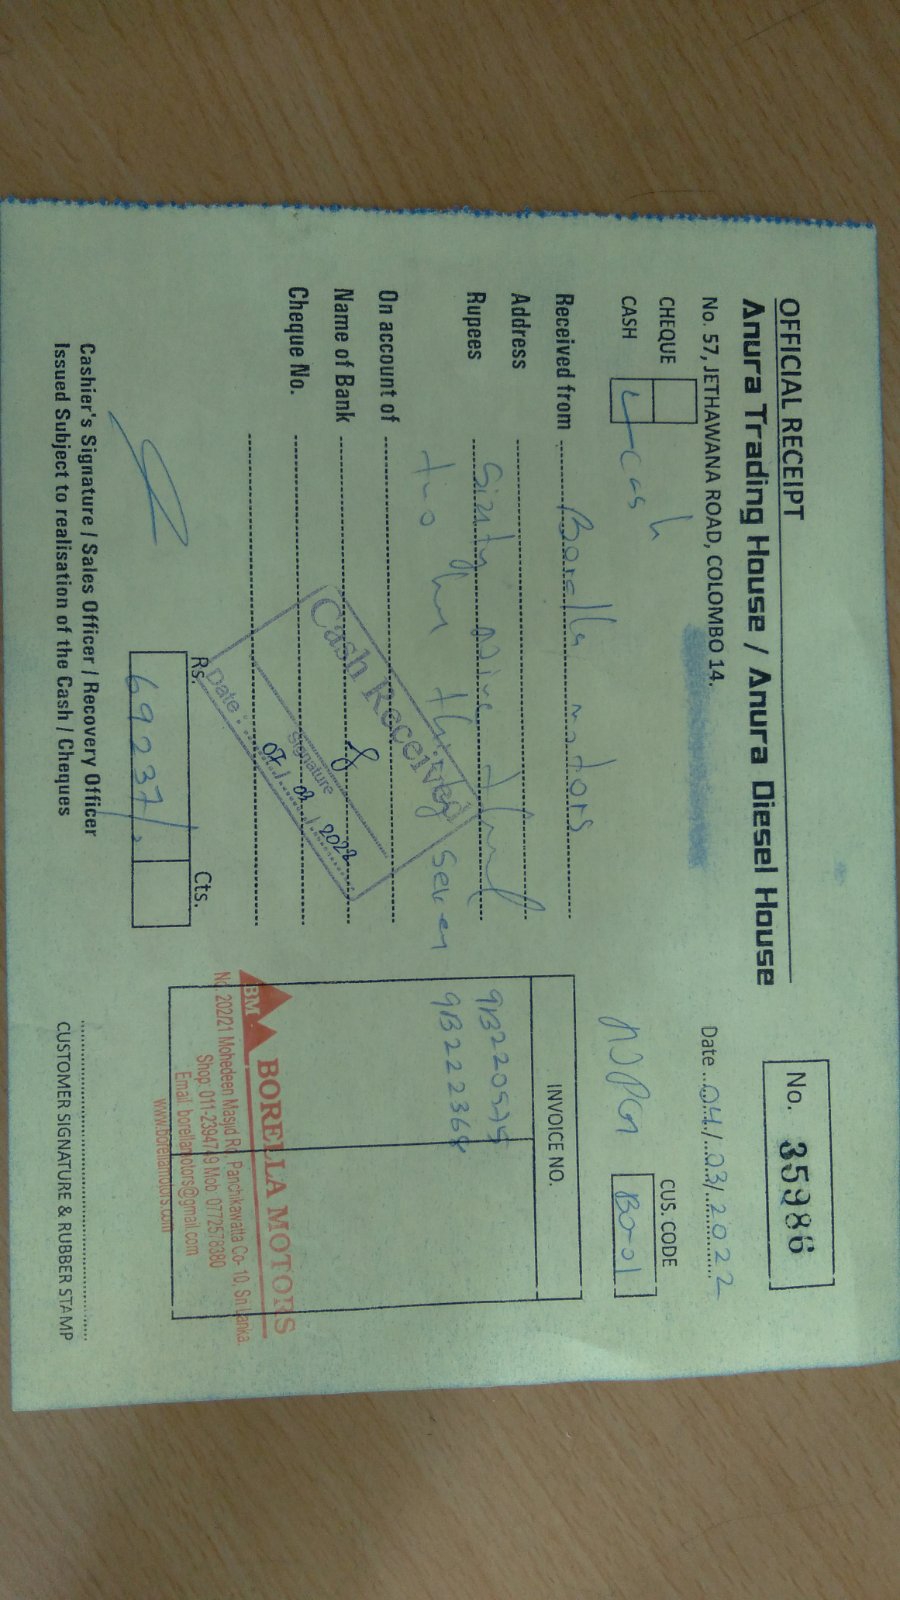 OFFICIAL RECEIPT
Anura Trading House / Anura Diesel House
No. 57, JETHAWANA ROAD, COLOMBO 14.
No. 35986
Date 04/03/2022
CHEQUE
CASH cash
CUS. CODE
B0-01
Received from Borella motors
Address
Rupees Sixty Nine
two thirty Seven
On account of
Name of Bank
Cheque No.
INVOICE NO.
9B222368
Cash Received
Signature
Date : 07/03/2022
Rs. Cts.
69237/.
BM BORELLA MOTORS
No. 202/21 Mohedeen Masjid Rd, Panchikawatta Co- 10, Sri Lanka.
Shop: 011-2394749 Mob: 0772578380
Email: borellamotors@gmail.com
www.borellamotors.com
Cashier's Signature / Sales Officer / Recovery Officer
Issued Subject to realisation of the Cash / Cheques
CUSTOMER SIGNATURE & RUBBER STAMP